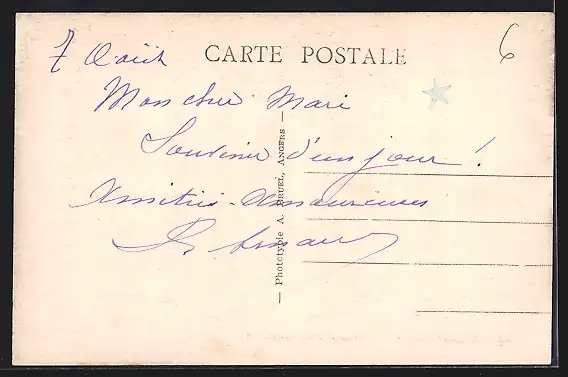 7 Août
CARTE POSTALE
6
Mon cher Mari
Souvenir d'un jour !
Amitiés
— Phototypie A. BRUEL, ANGERS —